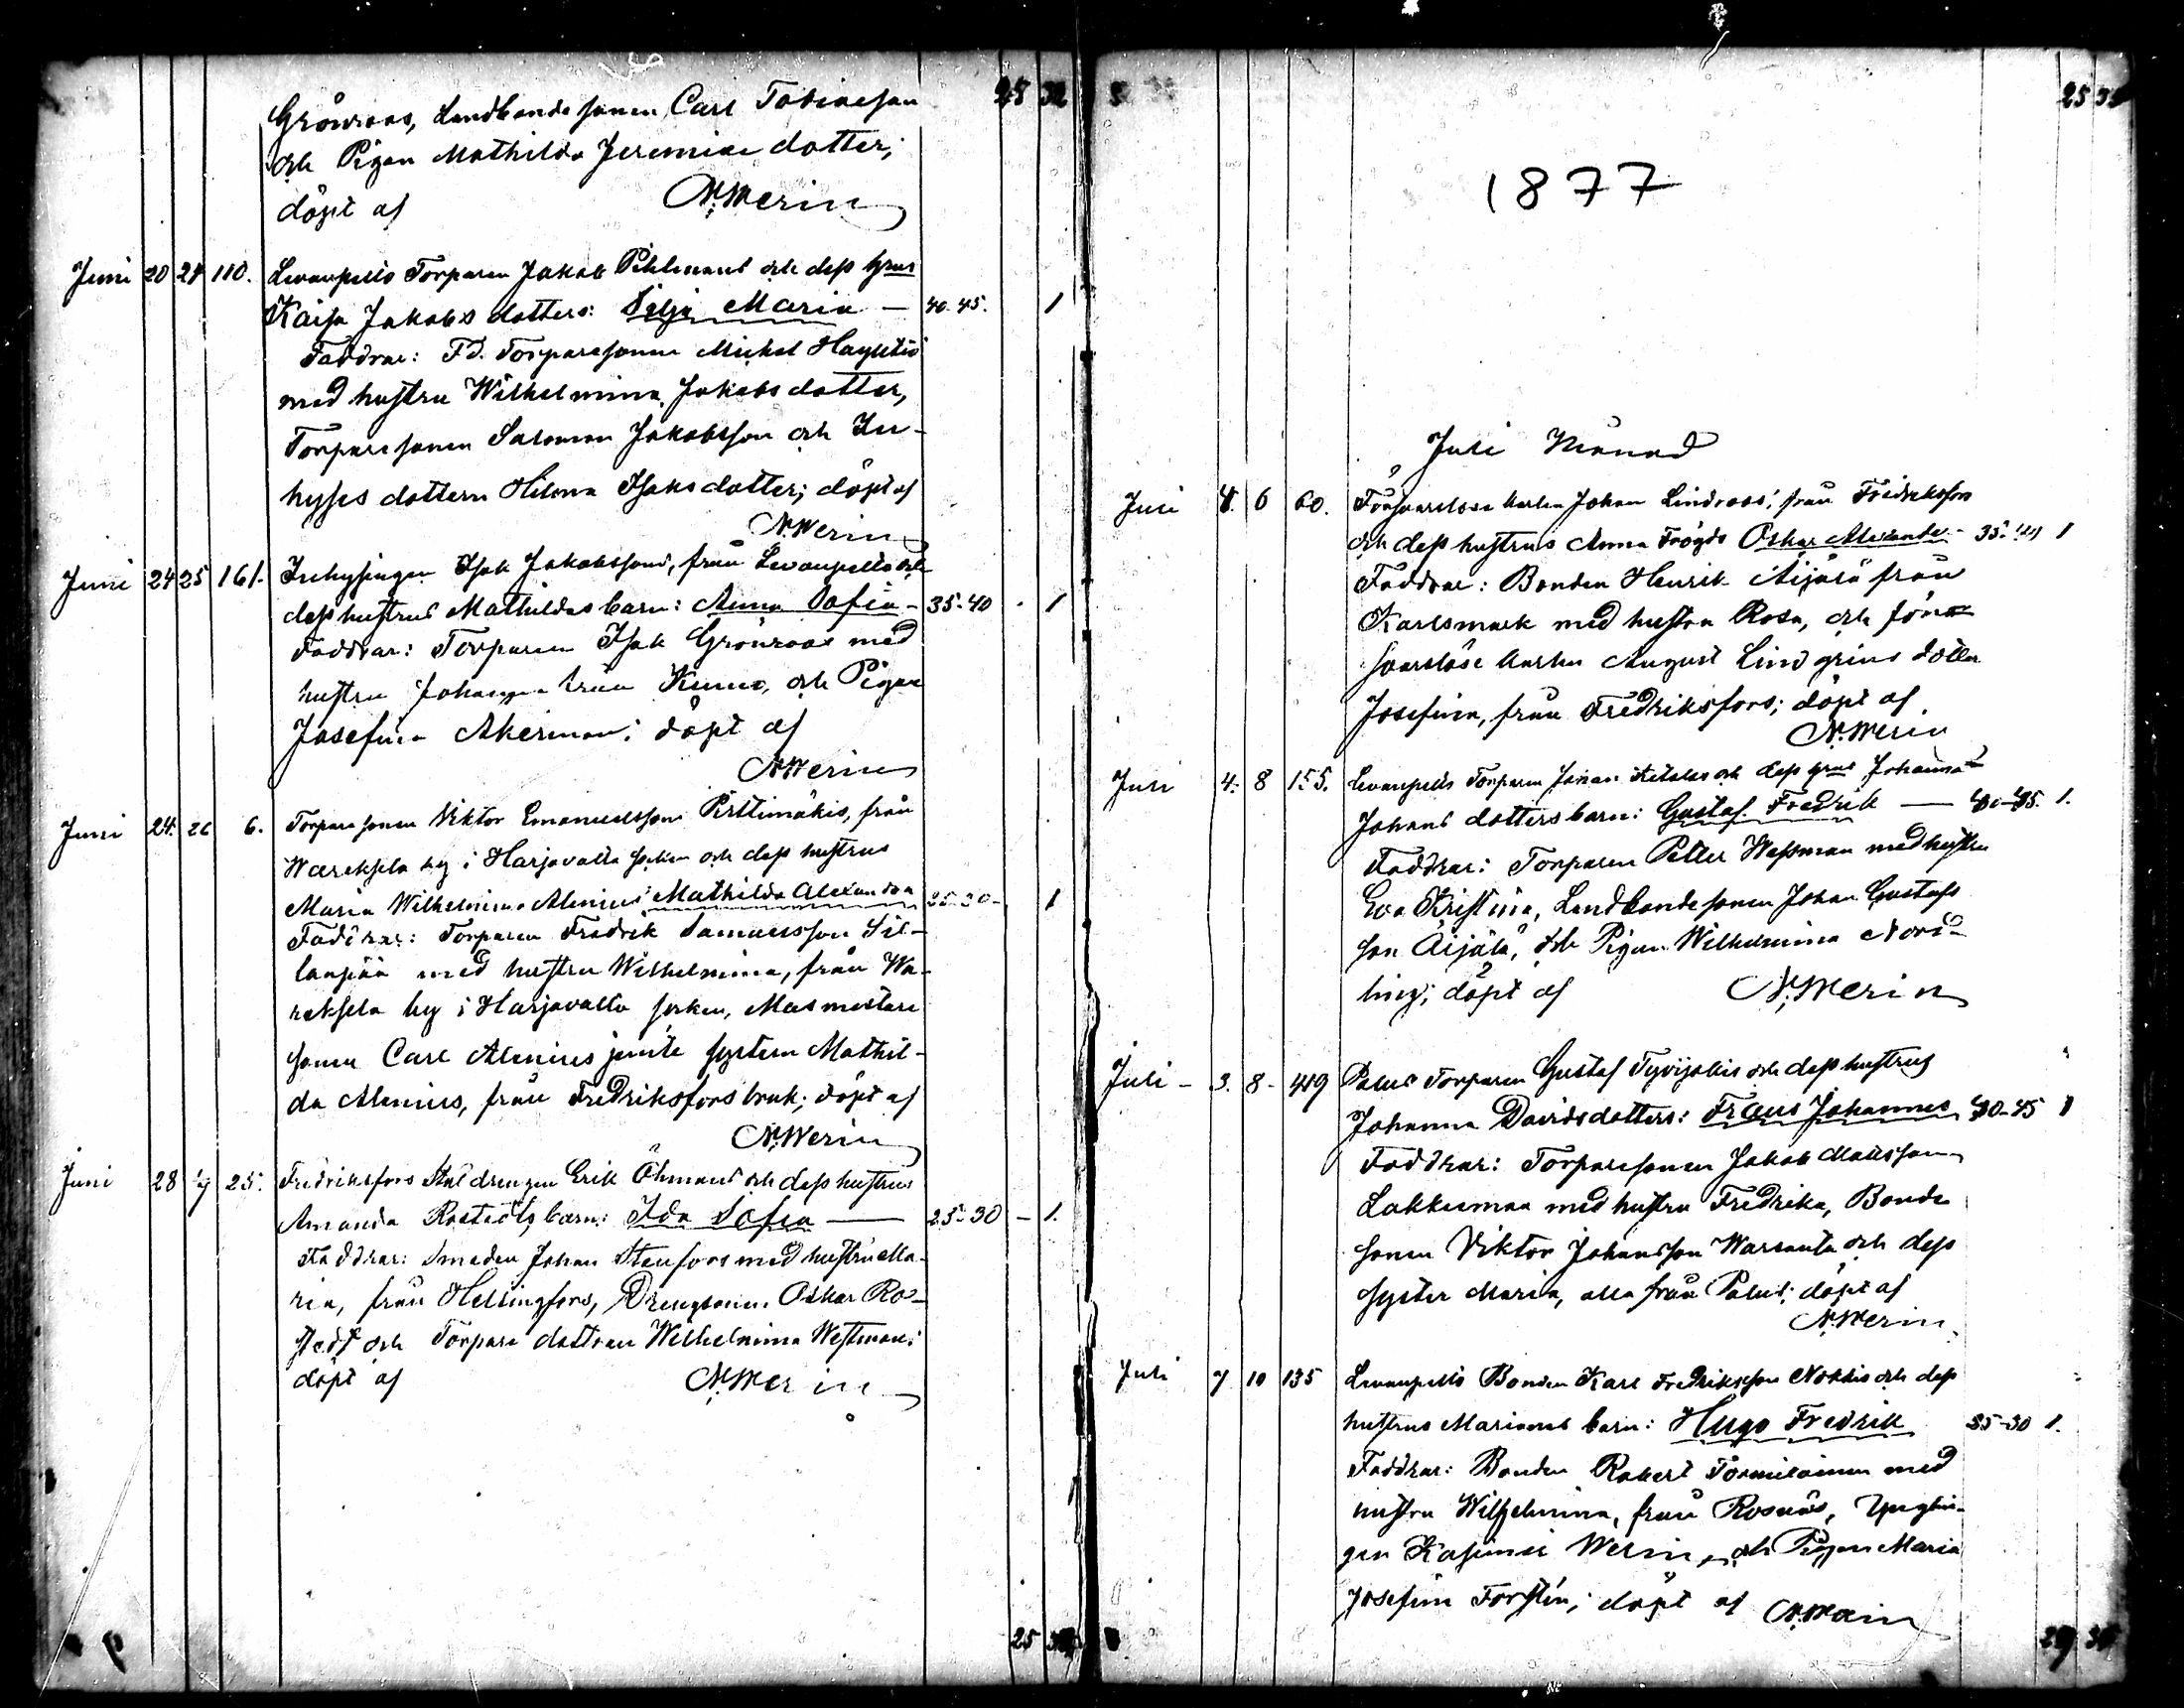 25 32
Grönroos, Landbonde sonen Carl Tobiasson
och Pigan Mathilda Jeremiae dotter;
döpt af N. Merin
Juni 20 24 110. Levanpelto Torparen Jakob Pihlmans och dess hrus
Kaisa Jakobs dotters: Silja Maria — 40.45. 1
Faddrar: Fd. Torparesonen Michel
med hustru Wilhelmina Jakobs dotter,
Torparesonen Salomon Jakobsson och In-
hyses dottern Hilma Isaks dotter; döpt af
N. Merin
Juni 24 25 161. Inhysingen Isak Jakobssons, från Levanpelto och
dess hustrus Mathildas barn: Anna Sofia - 35-40 1
Faddrar: Torparen Isak Grönroos med
hustru Johanna från och Pigan
Josefina Akerman; döpt af
N. Merin
Juni 24. 26 6. Torparesonen Viktor Emanuelssons Pirttimäkis, från
by i Harjavalta socken och dess hustrus
Maria Wilhelmina Alenius: Mathilda Alexandra 25-30- 1
Faddrar: Torparen Fredrik Samuelsson Sil-
lanpää med hustru Wilhelmina, från Wa-
by i Harjavalta socken, Masmästare
sonen Carl Alenius jemte systern Mathil-
da Alenius, från Fredriksfors bruk; döpt af
N. Merin
Juni 28 25. Fredriksfors Stal drengen Erik Öhmans och dess hustrus
Amanda Rostedts barn: Ida Sofia — 25-30 - 1.
Faddrar: Smeden Johan Stenfors med hustru Ma-
ria, från Helsingfors, Oskar Ro-
stedt och Torpare dottren Wilhelmina Westman;
döpt af N. Merin
25
25
1877
Juli Månad
Juli 4. 6 60. Försvarslöse karlen Johan Lindroos', från Fredriksfors
och dess hustrus Anna Oskar Alexander - 35-40 1
Faddrar: Bonden Henrik Äijälä från
Karlsmark med hustru Rosa, och för-
svarslöse karlen August Lindgrens dotter
Josefina, från Fredriksfors; döpt af
N. Merin
Juli 4. 8 155. Levanpelto Torparen Johan och dess hrus Johanna
Johans dotters barn: Gustaf Fredrik — 40-45. 1.
Faddrar: Torparen Petter Wessman med hustru
Eva Kristina, Landbonde sonen Johan Gustafs
son Äijälä, och Pigan Wilhelmina Nord-
ling; döpt af N. Merin
Juli - 3. 8 - 419 Palus Torparen Gustaf Tyvijokis och dess hustrus
Johanna Davidsdotters: Frans Johannes 40-45 1
Faddrar: Torparesonen Jakob Matsson
Lakkimaa med hustru Fredrika, Bonde
sonen Viktor Johansson och dess
syster Maria, alla från Palus; döpt af
N. Merin
Juli 7 10 135 Levanpelto Bonden Karl Fredriksson Nokkis och dess
hustrus Marianas barn: Hugo Fredrik 25-30 1.
Faddrar: Bonden Robert med
hustru Wilhelmina, från Rosnäs, Ynglin-
gen Kasimir Merin, och Pigan Maria
Josefina; döpt af N. Merin